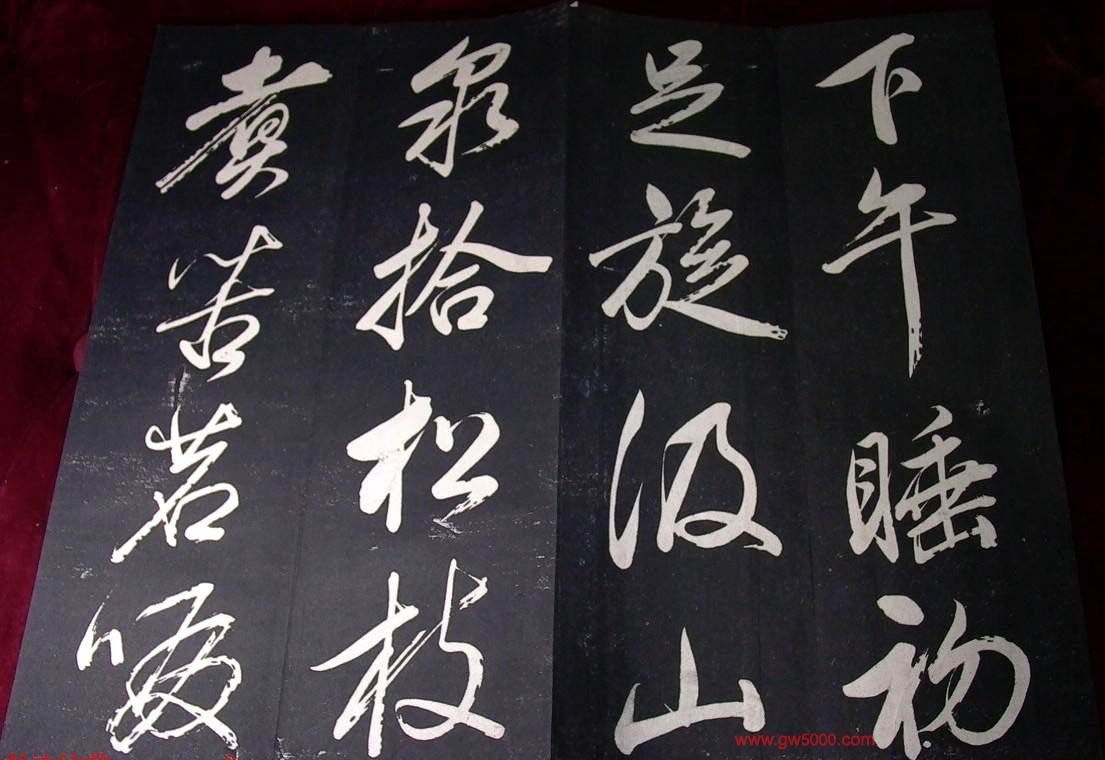 下午睡初
足旋汲山
泉拾松枝
煑苦茗啜
www.gw5000.com